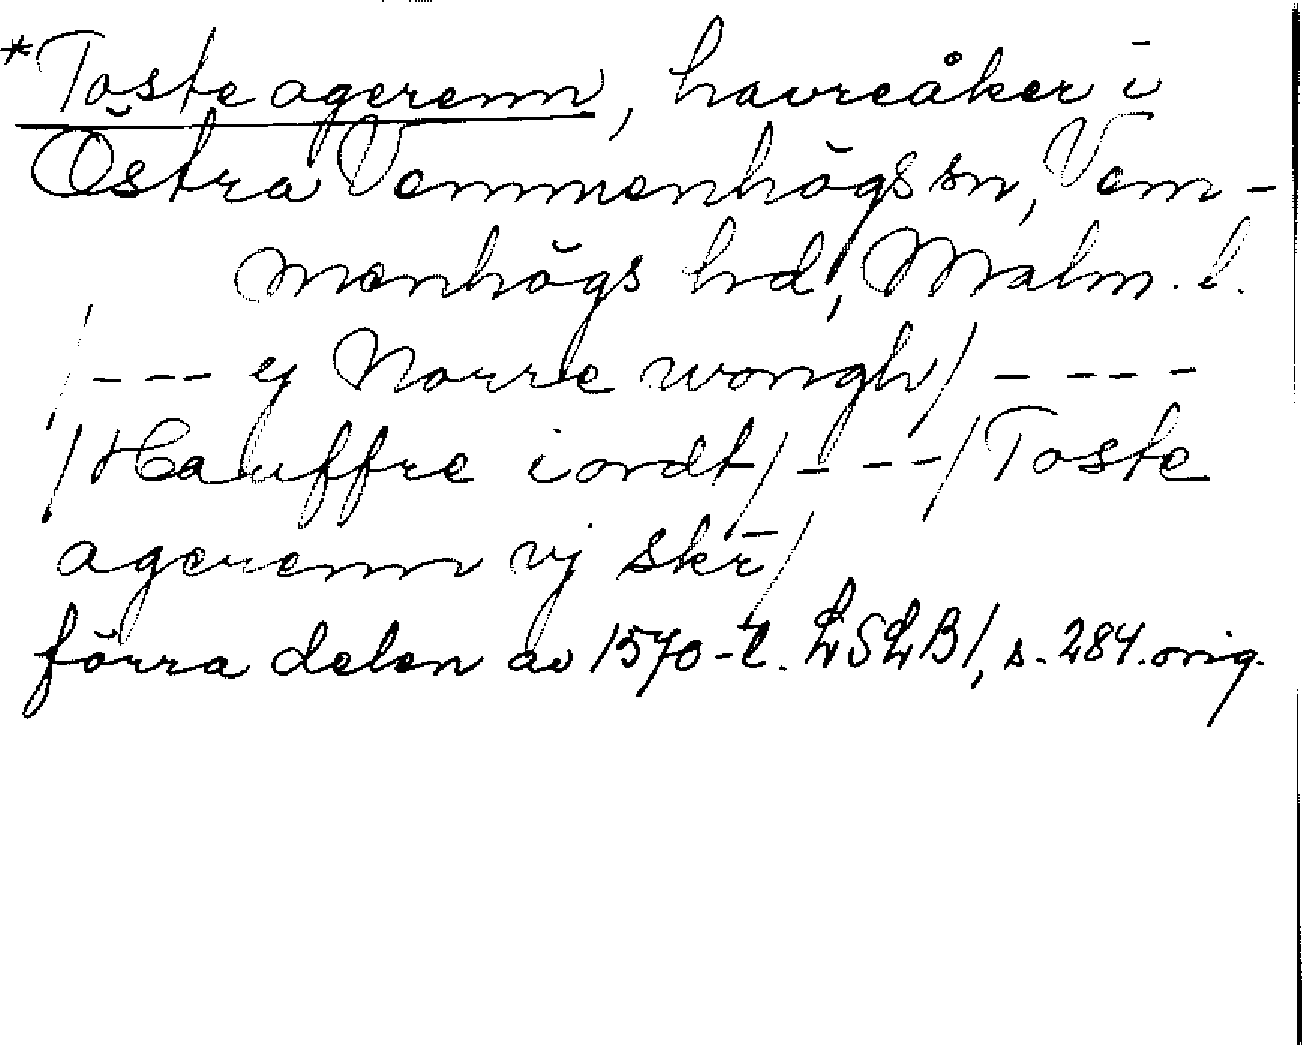 *Toste agerenn, havreåker i
Östra Vemmenhögs sn, Vem-
menhögs hd, Malm. l.
/--- ej Norre wongh/ ----
/Hauffre iordt/ ---/Toste
agerenn vj skr̄/
förra delen av 1570-t. LSLB1, s. 284. orig.